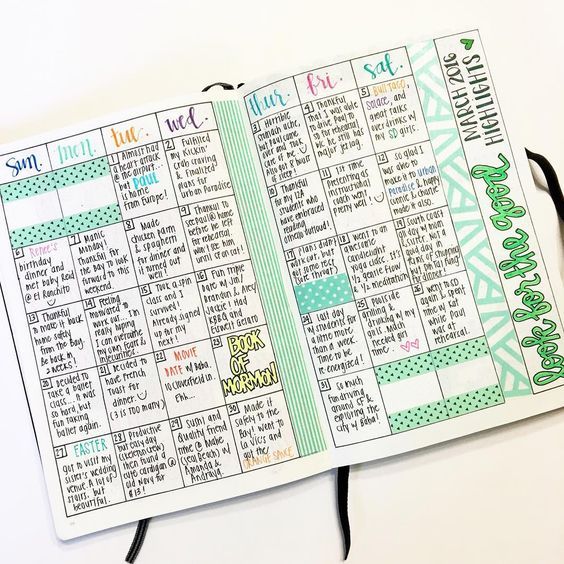 SUN.
mon.
tue.
wed.
thur.
fri.
sat.
MARCH 2016
HIGHLIGHTS
look for the good
1 Almost had
a heart attack
@ the airport...
but PAUL
is home
from Europe!
2 Fulfilled
my Kickin'
Crab craving
& Finalized
plans for
Urban Paradise
3 Horrible
stomach ache,
but Paul came
over and took
care of me
4 Thankful
that I was able
to drive Paul to
SD for rehearsal
he still has
major jet lag.
5 Bull Taco,
Solace, and
great talks
over drinks w/
my SD girls.
6 Renee's
birthday
dinner and
met baby Reid
@ El Ranchito
7 Manic
Monday!
Thankful for
the Bay to look
forward to this
weekend.
8 Made
chicken parm
& spaghetti
for dinner
and it turned
out well!
9 Thankful to
see Paul @ home
before he left
for rehearsal
won't see him
until
10 Thankful
for my
students who
have embraced
reading
Othello outloud!
11 My first
time
presenting as
instructional
coach went
pretty well!
12 So glad
I was able to
make it to Urban
Paradise & happy
Connie & Charlie
made it also.
13 Thankful
to make it back
home safely
from the Bay.
Be back in
2 weeks!
14 Feeling
motivated to
work out... I'm
really hoping
I can overcome
my own fear &
insecurities.
15 Took a spin
class and I
survived!
Already
signed up
for my next!
16 Fun triple
date w/ Jimi
Brandon & Arey
Jackie &
@ K&A BBQ and
Esowet Gelato
17 Plans didn't
work out, but
got some
rest
18 Went to an
awesome
candlelight
yoga class. It's
1/2 gentle flow
1/2 meditation
19 South coast
day w/ mom &
sister. SWEET
day in
but Din Tai Fung!
20 Decided to
take a ballet
class... It was
so hard, but
fun taking
ballet again.
21 Decided to
have French
Toast for
dinner.
(3 is too many)
22 MOVIE
DATE w/ Baba.
10 Cloverfield in
Ehh...
23 BOOK
OF
MORMON
24 Last day
w/ students for
a little more
than a week.
Time to be
re-energized!
25 Poolside
grilling &
drinking w/ my
girls. Much
needed girl
time.
26 Went to SD
again &
spent time w/
Kat while
Paul was
at rehearsal.
27 EASTER
Got to visit my
sister's wedding
venue. A lot of
stairs, but
beautiful.
28 Productive
but easy day
then found a
cute cardigan
@ Old Navy for
$13!
29 Sushi and
Quality Friend
time @ Mahe
(Seal Beach) w/
Amanda &
Andraya.
30 Made it
safely to the
Bay! Went to
La Vics and
got the
ORANGE SAUCE
31 So much
fun driving
around SF &
exploring the
city w/ Baba!